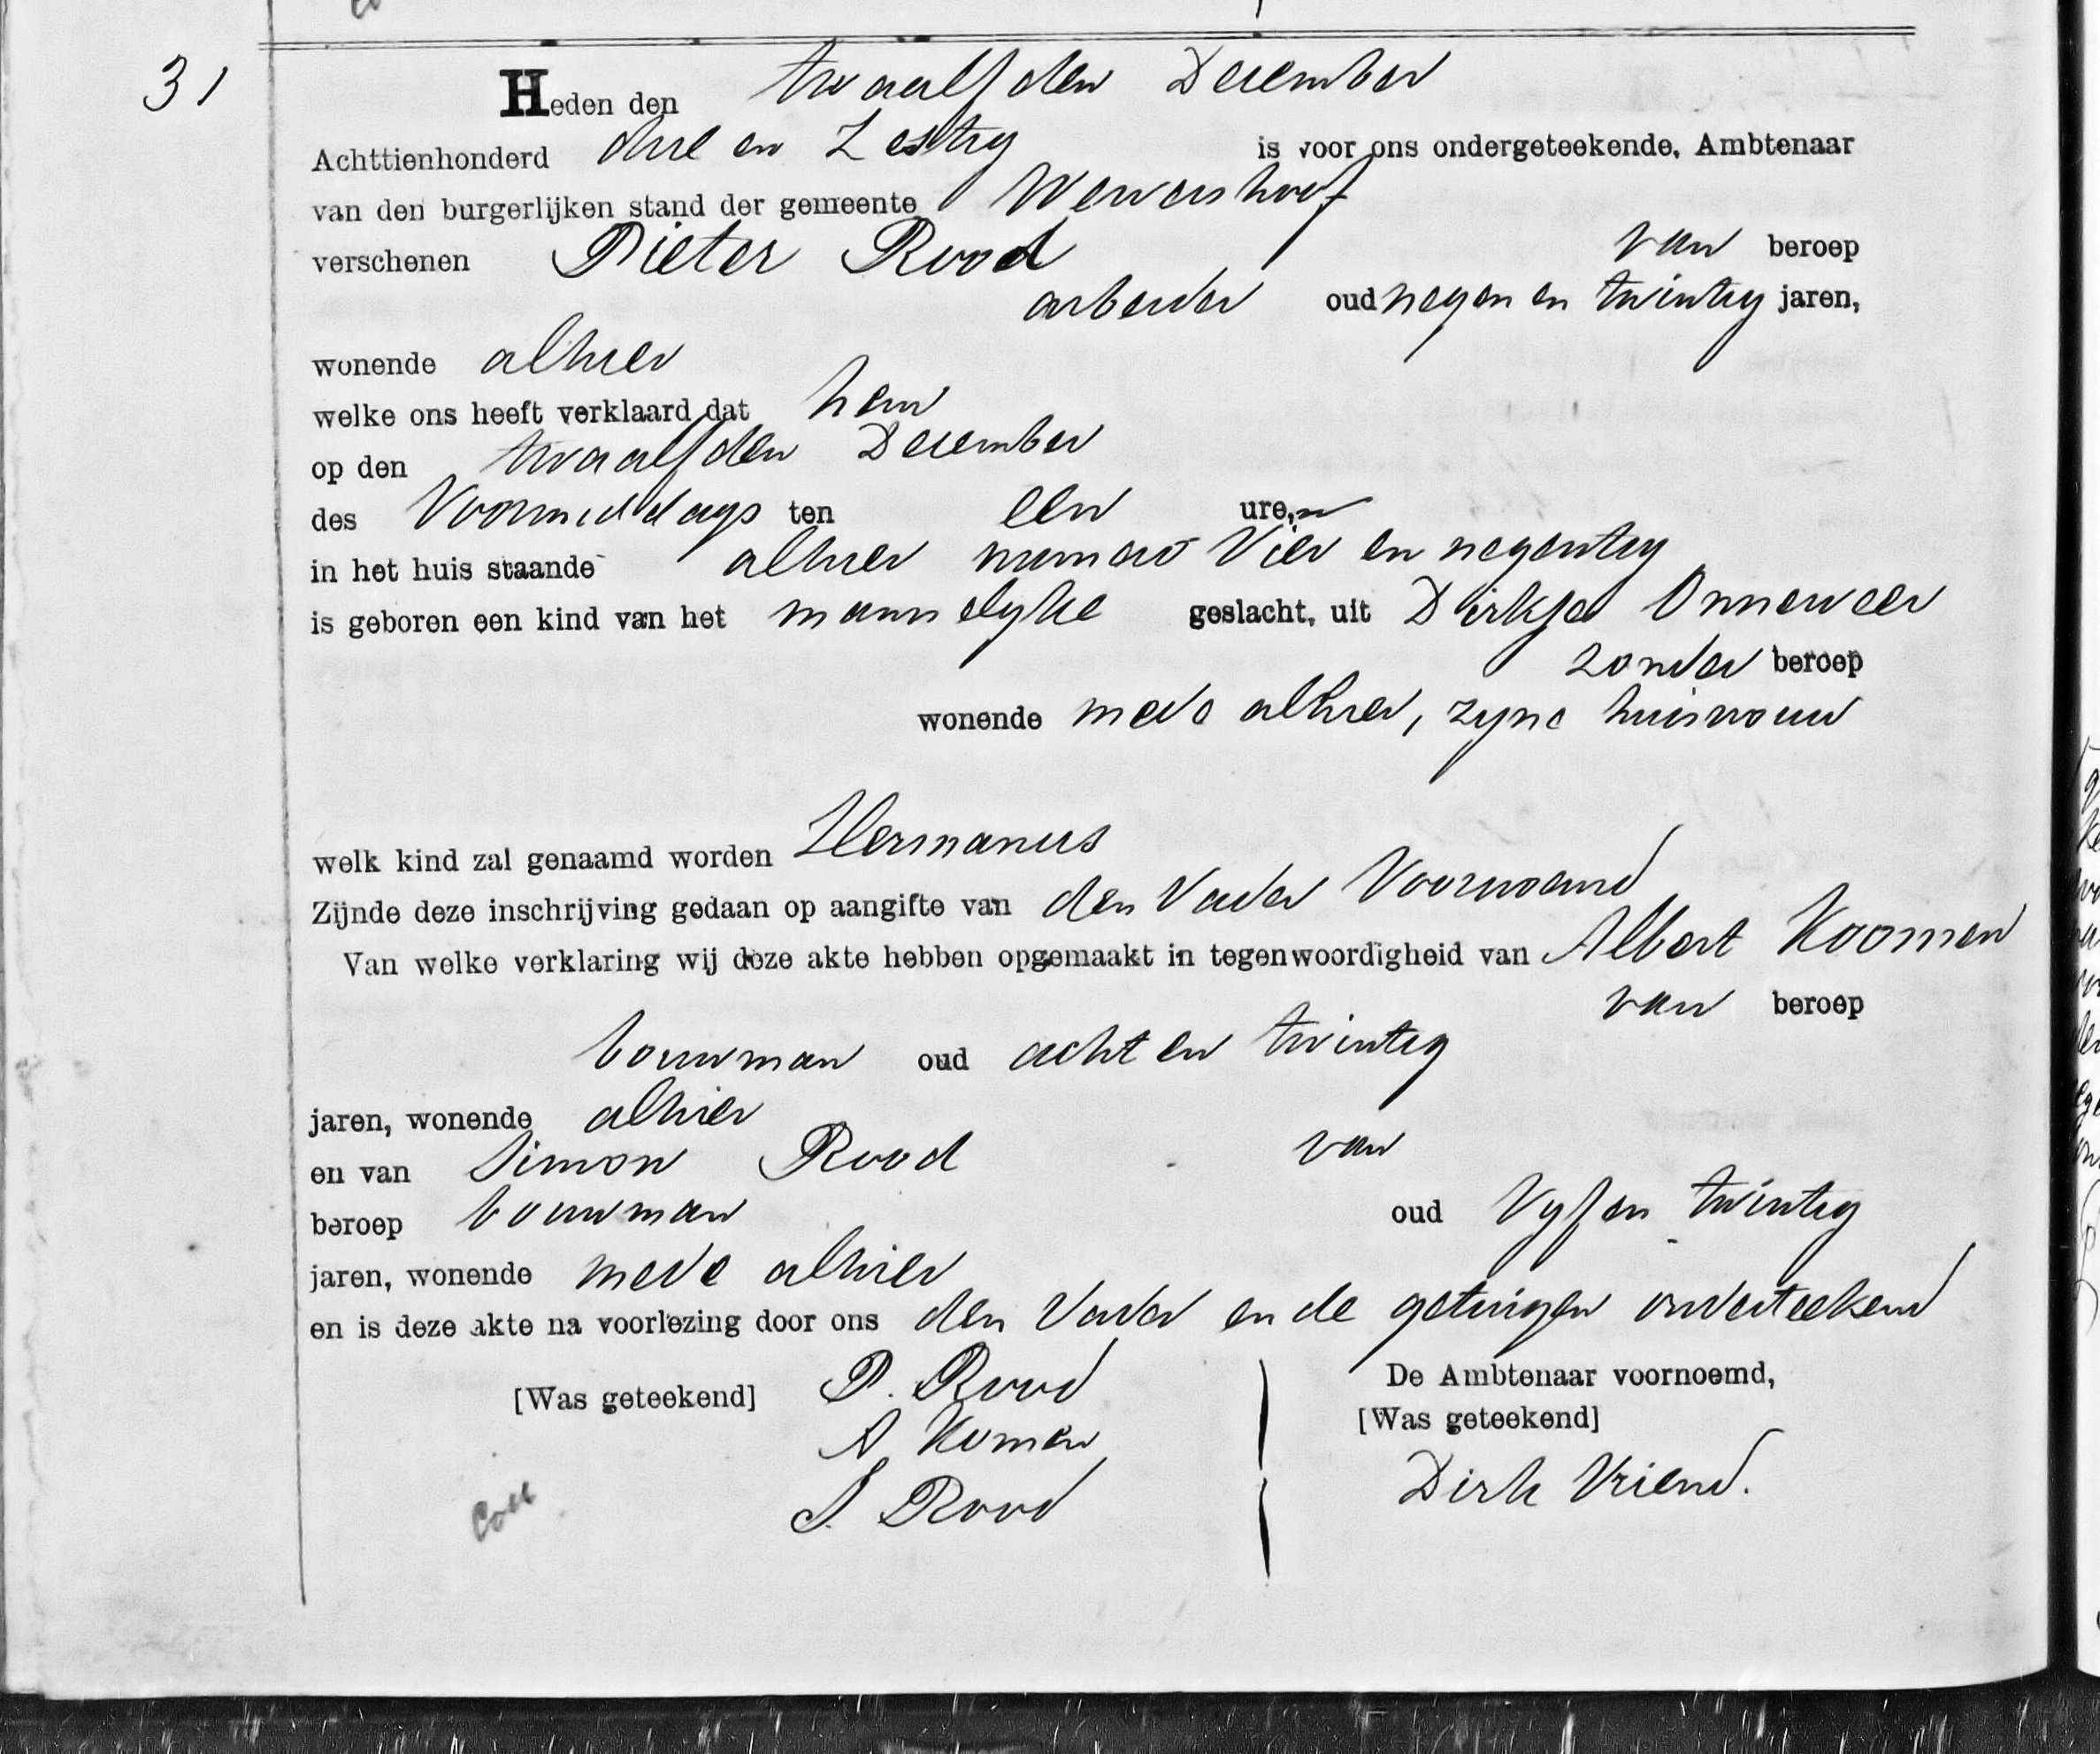 31
Heden den twaalfden December
Achttienhonderd drie en Zestig is voor ons ondergeteekende, Ambtenaar
van den burgerlijken stand der gemeente Wervershoof
verschenen Pieter Rood van beroep
arbeider oud negen en twintig jaren,
wonende alhier
welke ons heeft verklaard dat hem
op den twaalfden December
des Voormiddags ten een ure,
in het huis staande alhier numero Vier en negentig
is geboren een kind van het mannelyke geslacht, uit Dirkje Onneweer
zonder beroep
wonende mede alhier, zyne huisvrouw
welk kind zal genaamd worden Hermanus
Zijnde deze inschrijving gedaan op aangifte van den Vader Voornoemd
Van welke verklaring wij deze akte hebben opgemaakt in tegenwoordigheid van Albert Koomen
van beroep
bouwman oud acht en twintig
jaren, wonende alhier
en van Simon Rood van
beroep bouwman oud Vyf en twintig
jaren, wonende mede alhier
en is deze akte na voorlezing door ons den Vader en de getuigen onderteekend
[Was geteekend] P. Rood
A. Komen
S. Rood
De Ambtenaar voornoemd,
[Was geteekend]
Dirk Vriend.